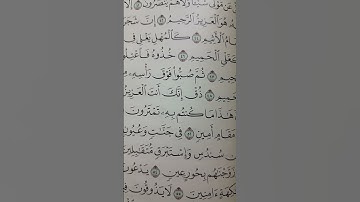 عَن مَّوْلًى شَيْـًٔا وَلَا هُمْ يُنصَرُونَ ٤١ إِلَّا
هُوَ ٱلْعَزِيزُ ٱلرَّحِيمُ ٤٢ إِنَّ شَجَرَ
ٱلْأَثِيمِ ٤٤ كَٱلْمُهْلِ يَغْلِى فِى
ٱلْحَمِيمِ ٤٦ خُذُوهُ فَٱعْتِلُو
٤٧ ثُمَّ صُبُّوا۟ فَوْقَ رَأْسِهِۦ مِ
٤٨ ذُقْ إِنَّكَ أَنتَ ٱلْعَزِيزُ
هَٰذَا مَا كُنتُم بِهِۦ تَمْتَرُونَ
مَقَامٍ أَمِينٍ ٥١ فِى جَنَّٰتٍ وَعُيُونٍ
سُندُسٍ وَإِسْتَبْرَقٍ مُّتَقَٰبِلِينَ
وَزَوَّجْنَٰهُم بِحُورٍ عِينٍ ٥٤ يَدْعُونَ
ءَامِنِينَ ٥٥ لَا يَذُوقُونَ فِ